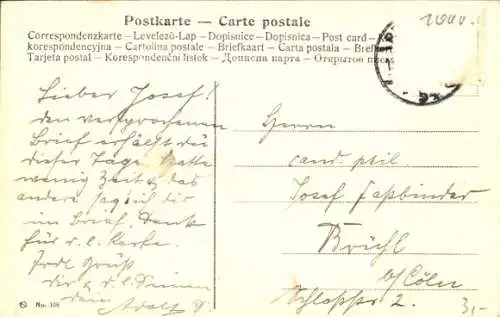 Postkarte — Carte postale
Correspondenzkarte — Levelező-Lap — Dopisnice — Dopisnica — Post card —
korespondencyjna — Cartolina postale — Briefkaart — Carta postala — Brefkort
Tarjeta postal — Korespondenčni listek — Дописна карта — Открытое письмо
Lieber Josef!
den versprochenen
Brief erhälst du
dieser Tage. Hatte
wenig Zeit & das
andere sag ich dir
im Brief. Dank
für d. l. Karte.
Gruß
dir & d. l.
dein Adolf
Herrn
cand. phil.
Josef Faßbinder
Brühl
b/Cöln
Schloßstr 2.
No. 106
3,-